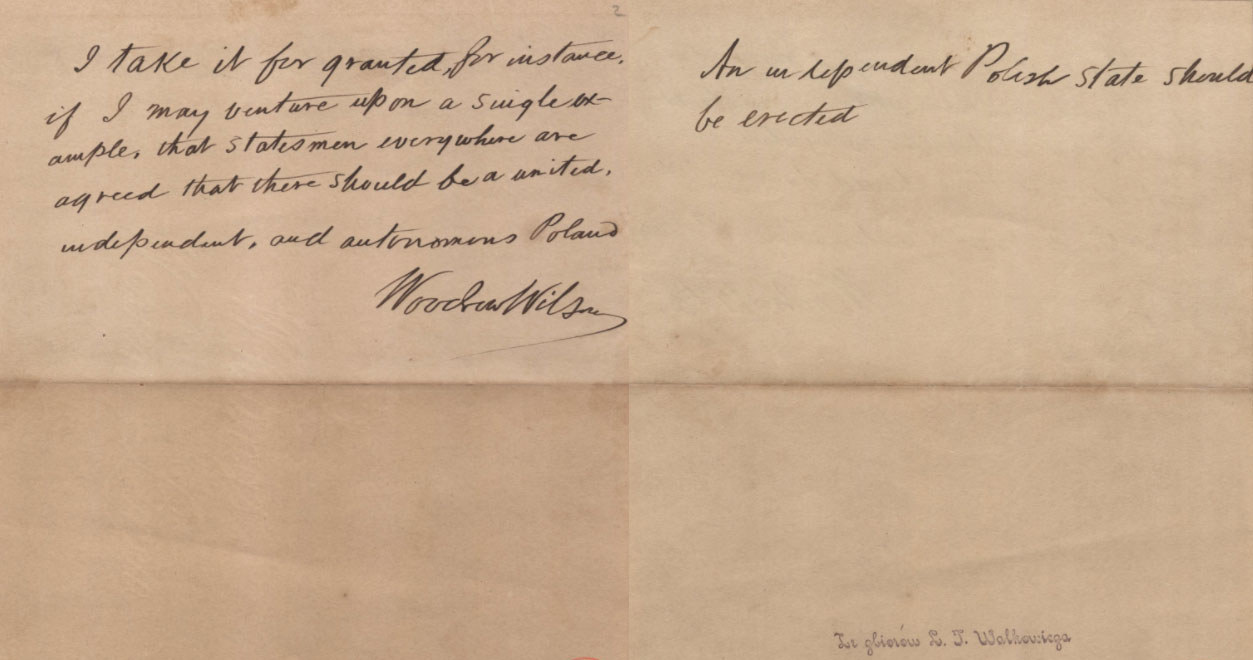 2
I take it for granted, for instance,
if I may venture upon a single ex-
ample, that statesmen everywhere are
agreed that there should be a united,
independent, and autonomous Poland
Woodrow Wilson
An independent Polish state should
be erected
Ze zbiorów L. J. Walkowicza